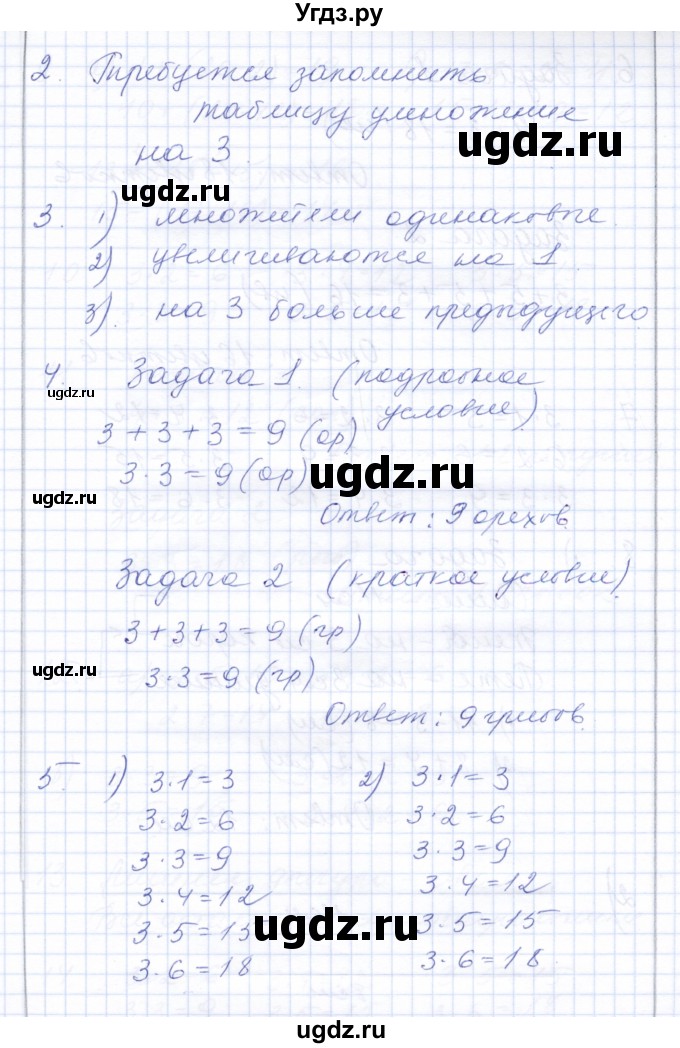 Угдз.ру
2. Требуется запомнить
таблицу умножение
на 3.
ugdz.ru
ugdz.ru
3. 1) множители одинаковые.
2) увеличиваются на 1.
3). на 3 больше предыдущего
4. Задача 1. (подробное
условие)
ugdz.ru
3 + 3 + 3 = 9 (ор)
3 · 3 = 9 (ор)
ugdz.ru
ugdz.ru
Ответ: 9 орехов.
Задача 2 (краткое условие)
3 + 3 + 3 = 9 (гр)
3 · 3 = 9 (гр)
ugdz.ru
Ответ: 9 грибов.
5. 1) 3 · 1 = 3
3 · 2 = 6
3 · 3 = 9
3 · 4 = 12
3 · 5 = 15
3 · 6 = 18
2) 3 · 1 = 3
3 · 2 = 6
3 · 3 = 9
3 · 4 = 12
3 · 5 = 15
3 · 6 = 18
ugdz.ru
ugdz.ru